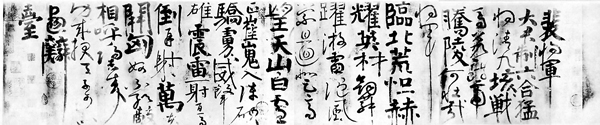 裴將軍
大君制六合猛
将清九垓戰
馬若龍虎
騰陵何壯哉
将軍
臨北荒烜赫
耀英材劍舞
躍游電隨風
縈且迴登高
望天山白雲
正崔巍入陣破
驕虜威聲
雄震雷一射百馬
倒再射萬夫
開匈奴不敢敵
相呼歸去來
功成報天子可以
畫麟
臺